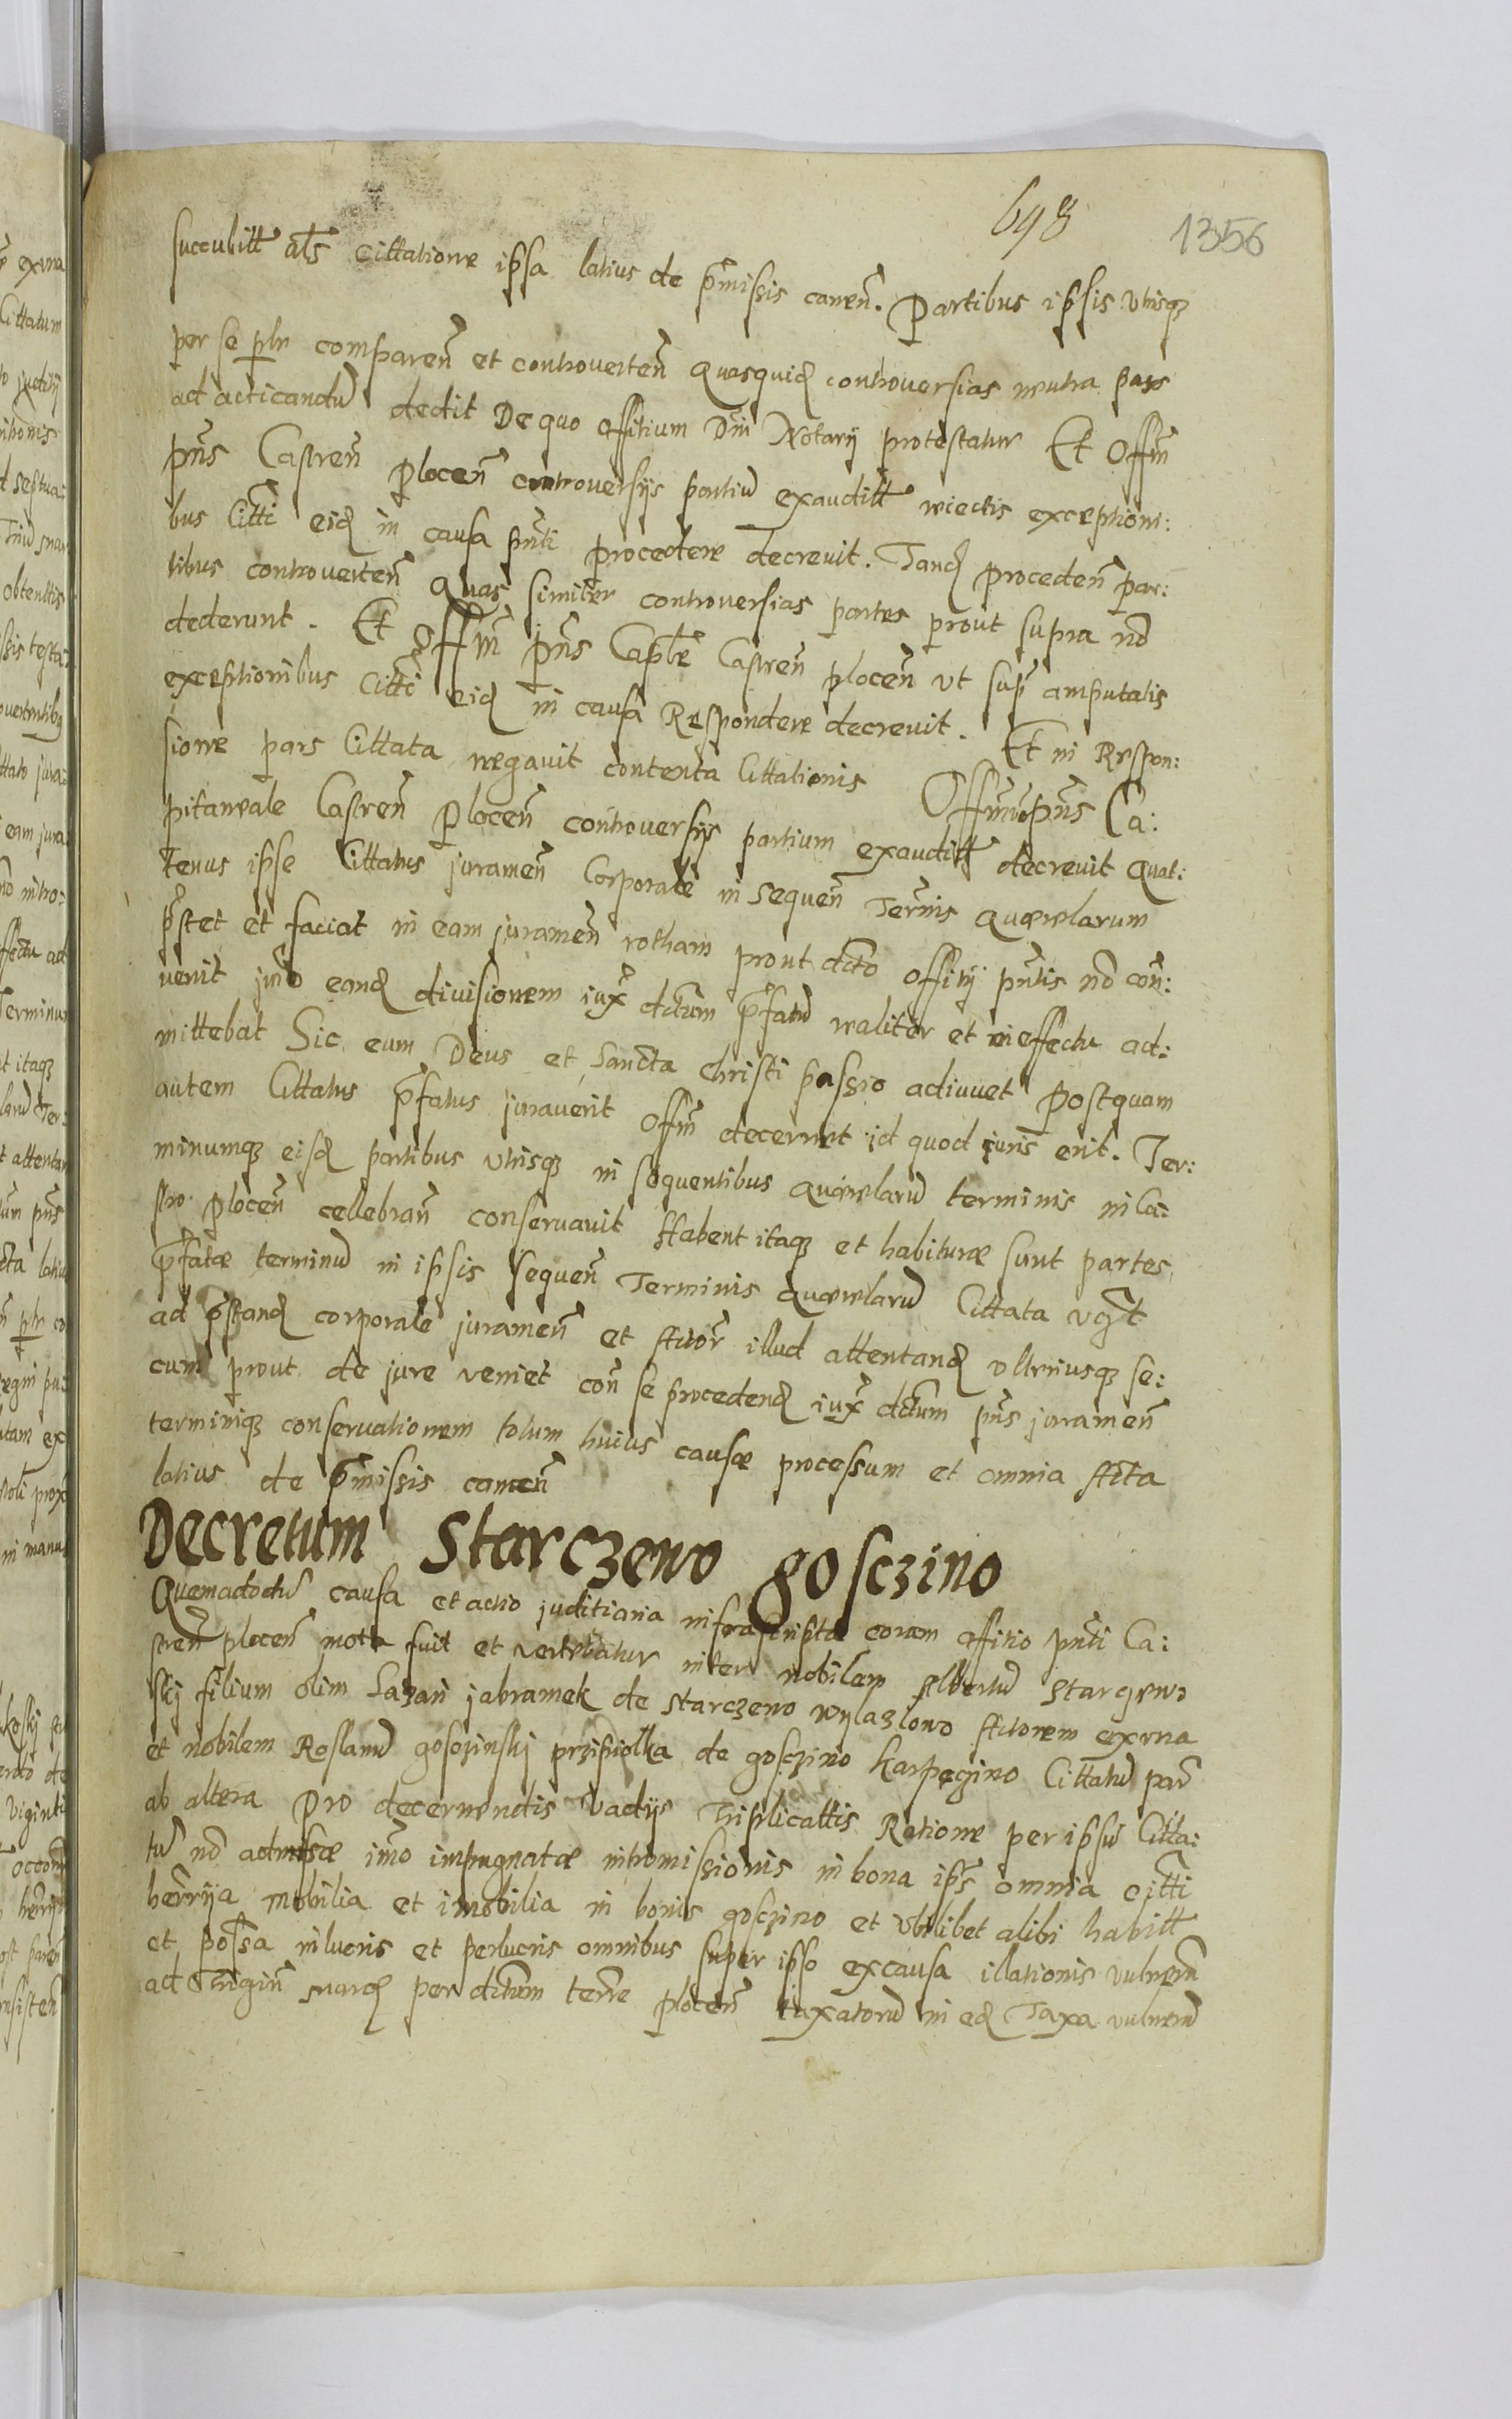 698 1356
succubitt als Cittatione ipsa latius de pmissis canen. Partibus ipsis utrisq
per se plr comparen et controverten quasquid controversias neutra pars
ad acticandu dedit De quo offitium Dni Notarij protestatur Et Offm
pns Castren Plocen controversijs partiu exauditt reiectis exceptioni:
bus Citti eid in causa pnti procedere decrevit. Tand proceden par:
tibus controverten quas similiter controversias partes prout supra no
dederunt. Et Offm pns Caple Castren plocen ut sup amputatis
exceptionibus Citti eid in causa Respondere decrevit. Et in Respon:
sione pars Cittata negavit contenta Cittationis Offm pns Ca:
pitaneale Castren Plocen controversijs partium exauditt decrevit Quat:
tenus ipse Cittatus juramen Corporale in sequen Termis Quaerelarum
pstet et faciat in eam juramen rotham prout dcto offitij pntis no con:
venit imo eand divisionem iux dctum pfatu realiter et in effectu ad:
mittebat Sic eum Deus et Sancta Christi passio adiuvet Postquam
autem Cittatus pfatus juraverit Offm decernet id quod juris erit. Ter:
minumq eisd partibus utrisq in sequentibus Quaerelaru terminis in Ca:
stro plocen cellebran conservavit Habent itaq et habiturae sunt partes
pfatae terminu in ipsis sequen Terminis Quaerelaru Cittata
ad pstand corporale juramen et Actor illud attentand ultriusq se:
cum prout de jure veniet con se procedend iux dctum pns juramen
terminiq conservationem totum huius causae processum et omnia Acta
latius de pmissis canen
Decretum Starczeno gosczino
Quemadodu causa et actio juditiaria infrascripta coram offitio pnti Ca:
stren plocen mota fuit et vertebatur inter nobilem Albertu Starczewo
skj filium olim Lazari jabramek de Starczeno wylazlowo Actorem ex una
et nobilem Roslanu gosczinskj przipiolka de gosczino Karpegino Cittatu par
ab altera Pro decernendis Vadijs Triplicattis Ratione per ipsu Citta:
tu no admissae imo impugnatae intromissionis in bona ips omnia citti
herrija mobilia et imobilia in bonis gosczino et ubilibet alibi habitt
et possa in lucris et perlucris omnibus super ipso ex causa illationis vulnerm
ad Trigin marc per dictum terre plocen taxatoru in ead Taxa vulneru